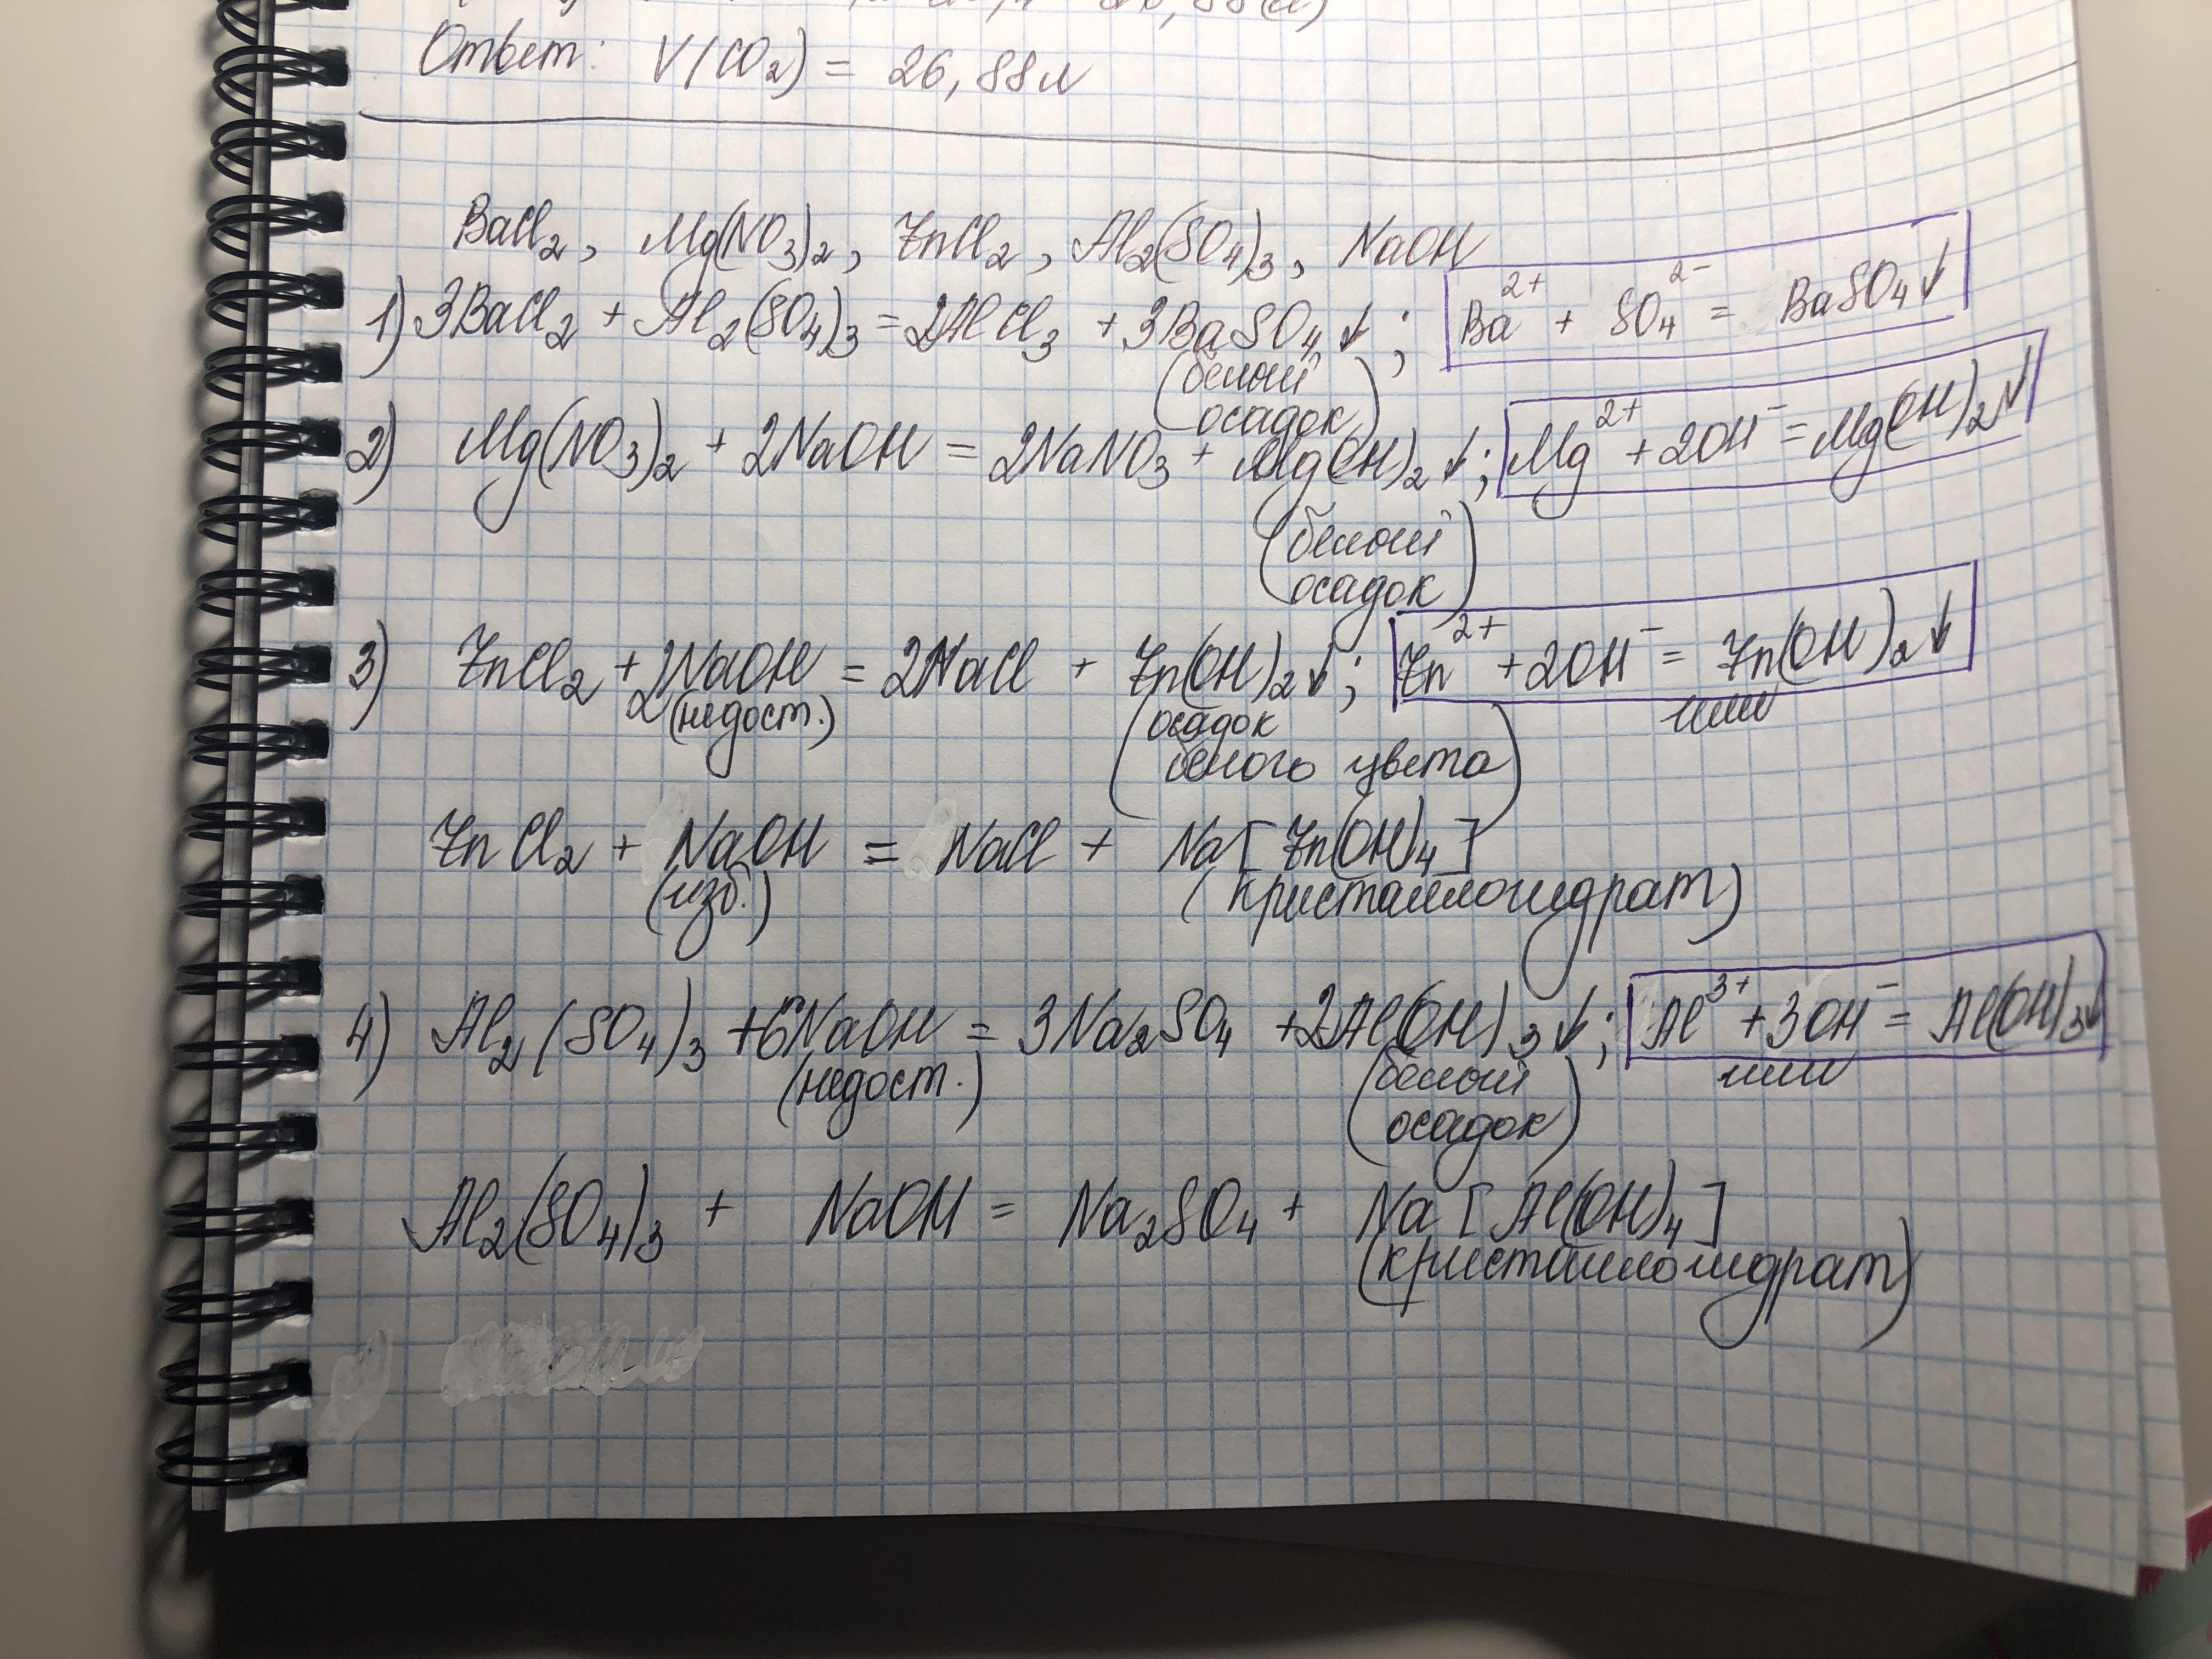 Ответ: V(CO₂) = 26,88 л
BaCl₂, Mg(NO₃)₂, ZnCl₂, Al₂(SO₄)₃, NaOH
1) 3BaCl₂ + Al₂(SO₄)₃ = 2AlCl₃ + 3BaSO₄↓; Ba²⁺ + SO₄²⁻ = BaSO₄↓
(белый
осадок)
2) Mg(NO₃)₂ + 2NaOH = 2NaNO₃ + Mg(OH)₂↓; Mg²⁺ + 2OH⁻ = Mg(OH)₂↓
(белый
осадок)
3) ZnCl₂ + 2NaOH = 2NaCl + Zn(OH)₂↓; Zn²⁺ + 2OH⁻ = Zn(OH)₂↓
(недост.) (осадок или
белого цвета)
ZnCl₂ + NaOH = NaCl + Na[Zn(OH)₄]
(изб.) (кристаллогидрат)
4) Al₂(SO₄)₃ + 6NaOH = 3Na₂SO₄ + 2Al(OH)₃↓; Al³⁺ + 3OH⁻ = Al(OH)₃↓
(недост.) (белый или
осадок)
Al₂(SO₄)₃ + NaOH = Na₂SO₄ + Na[Al(OH)₄]
(кристаллогидрат)